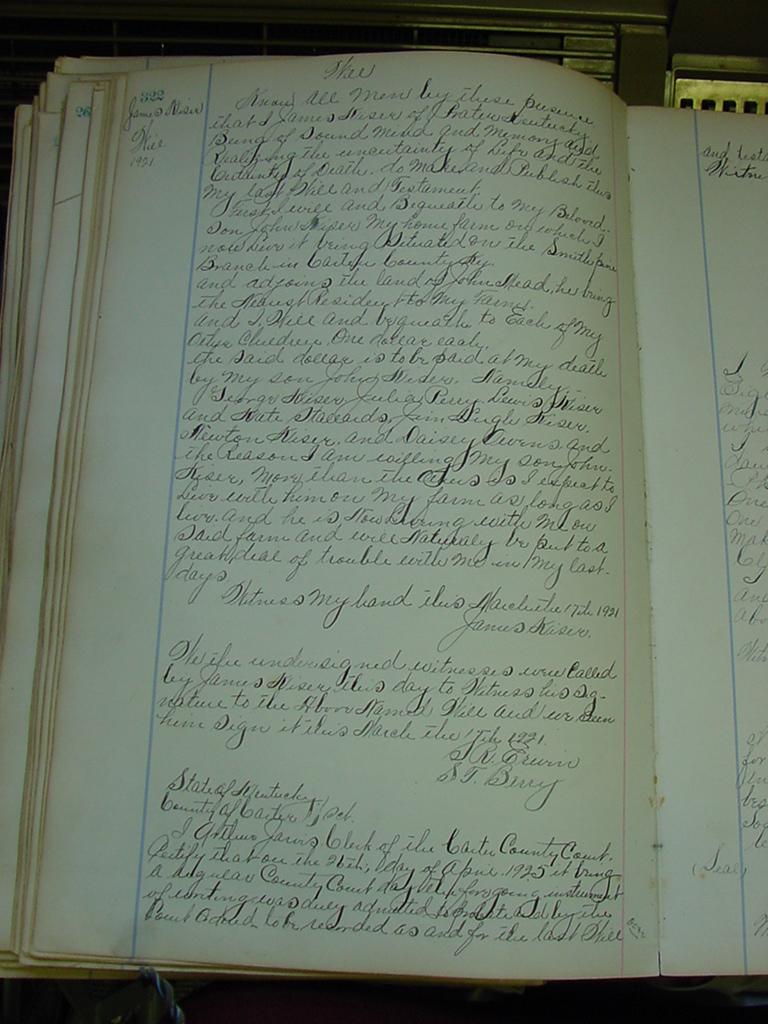 Will
322
James Kiser
Will
1921
Know all Men by these presence
that I James Kiser of Prater Kentucky
Being of Sound Mind and Memory and
Realizing the uncertainty of Life and the
Certainty of Death. do Make and Publish this
My last Will and Testament.
First I will and Bequeath to My Beloved
Son John Kiser My home farm on which I
now Live it being Situated on the Smith pine
Branch in Carter County Ky.
and adjoins the land of John Mead, he being
the Nearest Resident to My Farm.
and I Will and bequeath to Each of My
Other Children One dollar each.
the said dollar is to be paid at My death
by My son John Kiser. Namely.
George Kiser, Julia Perry, Lewis Kiser
and Kate Stallards, Jim Hugh Kiser.
Newton Kiser, and Daisey Owens and
the Reason I am willing My son John
Kiser, More than the Others is I expect to
Live with him on My farm as long as I
live. and he is Now Living with Me on
said farm and will Naturaly be put to a
great deal of trouble with Me in My last
days.
Witness My hand this March the 17th 1921
James Kiser.
We the undersigned witnesses were Called
by James Kiser this day to Witness his sig-
nature to the Above Named Will and we seen
him sign it this March the 17th 1921.
S. R. Erwin
S. T. Berry
State of Kentucky
County of Carter Sct.
I Arthur Jarvis Clerk of the Carter County Court.
Certify that on the day of April 1925 it being
a regular County Court day the foregoing instrument
of writing was duly admitted to probate and by the
Court Ordered to be recorded as and for the last Will
and testa
Witne
(Seal)